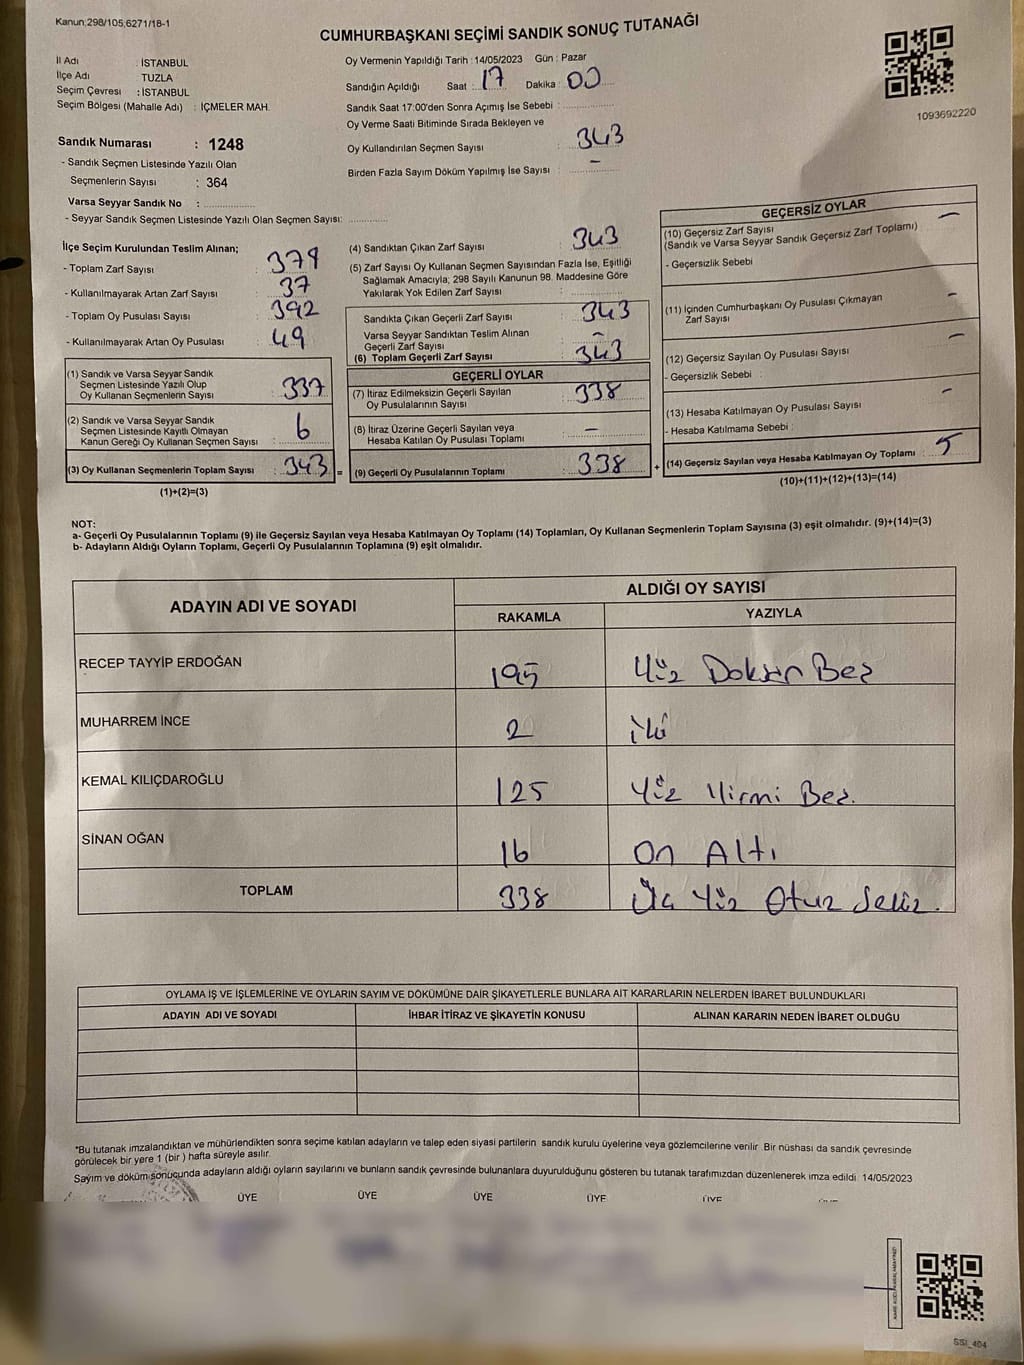 Kanun:298/105,6271/18-1
CUMHURBAŞKANI SEÇİMİ SANDIK SONUÇ TUTANAĞI
İl Adı : İSTANBUL
İlçe Adı TUZLA
Seçim Çevresi : İSTANBUL
Seçim Bölgesi (Mahalle Adı) : İÇMELER MAH.
Oy Vermenin Yapıldığı Tarih : 14/05/2023 Gün : Pazar
Sandığın Açıldığı Saat : 17 Dakika : 00
Sandık Saat 17:00'den Sonra Açımış İse Sebebi :
Oy Verme Saati Bitiminde Sırada Bekleyen ve
Oy Kullandırılan Seçmen Sayısı : 343
Birden Fazla Sayım Döküm Yapılmış İse Sayısı : -
1093692220
Sandık Numarası : 1248
- Sandık Seçmen Listesinde Yazılı Olan
Seçmenlerin Sayısı : 364
Varsa Seyyar Sandık No :
- Seyyar Sandık Seçmen Listesinde Yazılı Olan Seçmen Sayısı:
İlçe Seçim Kurulundan Teslim Alınan;
- Toplam Zarf Sayısı : 379
- Kullanılmayarak Artan Zarf Sayısı : 37
- Toplam Oy Pusulası Sayısı : 392
- Kullanılmayarak Artan Oy Pusulası : 49
(1) Sandık ve Varsa Seyyar Sandık
Seçmen Listesinde Yazılı Olup
Oy Kullanan Seçmenlerin Sayısı : 337
(2) Sandık ve Varsa Seyyar Sandık
Seçmen Listesinde Kayıtlı Olmayan
Kanun Gereği Oy Kullanan Seçmen Sayısı : 6
(3) Oy Kullanan Seçmenlerin Toplam Sayısı : 343 =
(1)+(2)=(3)
(4) Sandıktan Çıkan Zarf Sayısı : 343
(5) Zarf Sayısı Oy Kullanan Seçmen Sayısından Fazla İse, Eşitliği
Sağlamak Amacıyla; 298 Sayılı Kanunun 98. Maddesine Göre
Yakılarak Yok Edilen Zarf Sayısı :
Sandıkta Çıkan Geçerli Zarf Sayısı : 343
Varsa Seyyar Sandıktan Teslim Alınan
Geçerli Zarf Sayısı : -
(6) Toplam Geçerli Zarf Sayısı : 343
GEÇERLİ OYLAR
(7) İtiraz Edilmeksizin Geçerli Sayılan
Oy Pusulalarının Sayısı : 338
(8) İtiraz Üzerine Geçerli Sayılan veya
Hesaba Katılan Oy Pusulası Toplamı : -
(9) Geçerli Oy Pusulalarının Toplamı : 338 +
GEÇERSİZ OYLAR
(10) Geçersiz Zarf Sayısı -
(Sandık ve Varsa Seyyar Sandık Geçersiz Zarf Toplamı)
- Geçersizlik Sebebi
(11) İçinden Cumhurbaşkanı Oy Pusulası Çıkmayan -
Zarf Sayısı
(12) Geçersiz Sayılan Oy Pusulası Sayısı -
- Geçersizlik Sebebi :
(13) Hesaba Katılmayan Oy Pusulası Sayısı -
- Hesaba Katılmama Sebebi :
(14) Geçersiz Sayılan veya Hesaba Katılmayan Oy Toplamı : 5
(10)+(11)+(12)+(13)=(14)
NOT:
a- Geçerli Oy Pusulalarının Toplamı (9) ile Geçersiz Sayılan veya Hesaba Katılmayan Oy Toplamı (14) Toplamları, Oy Kullanan Seçmenlerin Toplam Sayısına (3) eşit olmalıdır. (9)+(14)=(3)
b- Adayların Aldığı Oyların Toplamı, Geçerli Oy Pusulalarının Toplamına (9) eşit olmalıdır.
ADAYIN ADI VE SOYADI
ALDIĞI OY SAYISI
RAKAMLA YAZIYLA
RECEP TAYYİP ERDOĞAN 195 Yüz Doksan Beş
MUHARREM İNCE 2 iki
KEMAL KILIÇDAROĞLU 125 Yüz Yirmi Beş.
SİNAN OĞAN 16 On Altı
TOPLAM 338 Üç Yüz Otuz Sekiz.
OYLAMA İŞ VE İŞLEMLERİNE VE OYLARIN SAYIM VE DÖKÜMÜNE DAİR ŞİKAYETLERLE BUNLARA AİT KARARLARIN NELERDEN İBARET BULUNDUKLARI
ADAYIN ADI VE SOYADI İHBAR İTİRAZ VE ŞİKAYETİN KONUSU ALINAN KARARIN NEDEN İBARET OLDUĞU
*Bu tutanak imzalandıktan ve mühürlendikten sonra seçime katılan adayların ve talep eden siyasi partilerin sandık kurulu üyelerine veya gözlemcilerine verilir Bir nüshası da sandık çevresinde
görülecek bir yere 1 (bir) hafta süreyle asılır.
Sayım ve döküm sonucunda adayların aldığı oyların sayılarını ve bunların sandık çevresinde bulunanlara duyurulduğunu gösteren bu tutanak tarafımızdan düzenlenerek imza edildi 14/05/2023
ÜYE ÜYE ÜYE ÜYE ÜYE
SSI_404